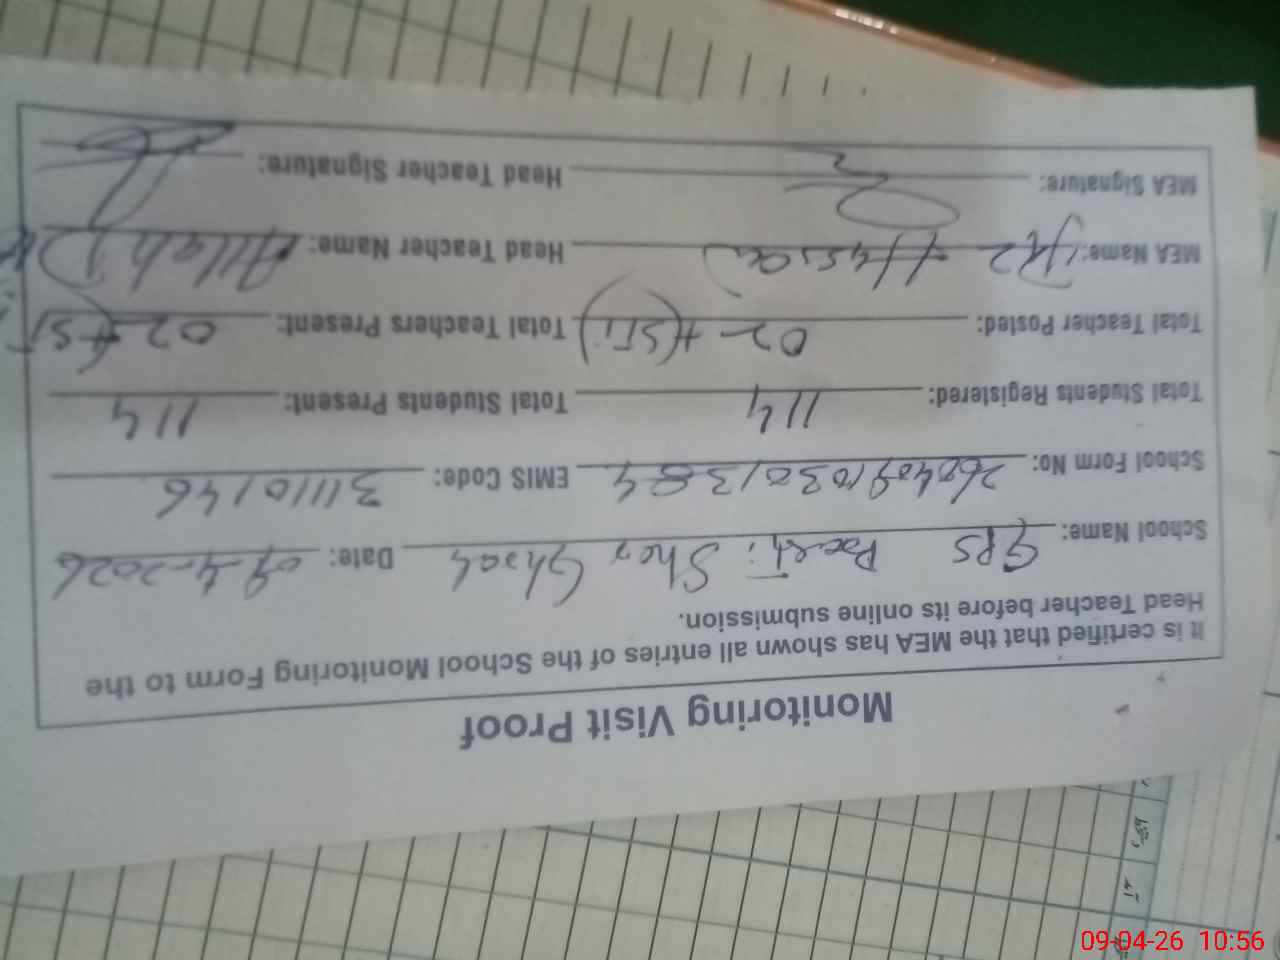 Monitoring Visit Proof
It is certified that the MEA has shown all entries of the School Monitoring Form to the
Head Teacher before its online submission.
School Name: GPS Sher Ghrah Date: 09-4-2026
School Form No: EMIS Code: 31110146
Total Students Registered: 114 Total Students Present: 114
Total Teacher Posted: 02 + (STi) Total Teachers Present: 02 + (ST
MEA Name: Hassan Head Teacher Name: Allah
MEA Signature: Head Teacher Signature:
09-04-26 10:56